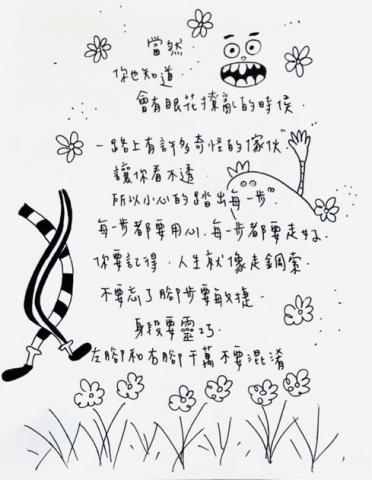 當然
你也知道.
會有眼花撩亂的時候.
一路上有許多奇怪的傢伙
讓你看不透.
所以小心的踏出每一步.
每一步都要用心.每一步都要走好
你要記得.人生就像走鋼索.
不要忘了腳步要敏捷.
身段要靈巧.
左腳和右腳千萬不要混淆